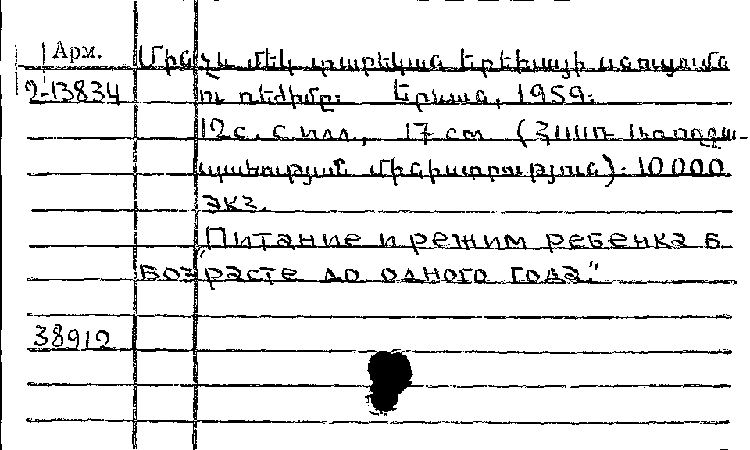 Арм. Մինչև մեկ տարեկան երեխայի սնունդն
2-13834 ու ռեժիմը։ Երևան, 1959.
12 с. с илл., 17 см (ՀՍՍՌ Առողջա-
պահության մինիստրություն). 10 000
экз.
"Питание и режим ребенка в
возрасте до одного года."
38912